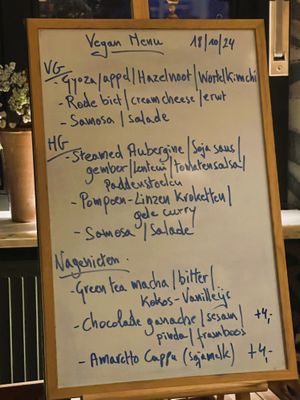 Vegan Menu 18/10/24
VG
- Gyoza/appel/Hazelnoot/Wortel/Kimchi
- Rode biet/creamcheese/erwt
- Samosa/salade
HG
- Steamed Aubergine/Soja saus/
gember/lenteui/tomatensalsa/
paddenstoelen
- Pompoen-Linzen Kroketten/
gele curry
- Samosa/Salade
Nagerechten.
- Green tea macha/bitter/
Kokos-Vanilleijs
- Chocolade ganache/sesam/ +4,-
pinda/framboos
- Amaretto Cappu (sojamelk) +4,-